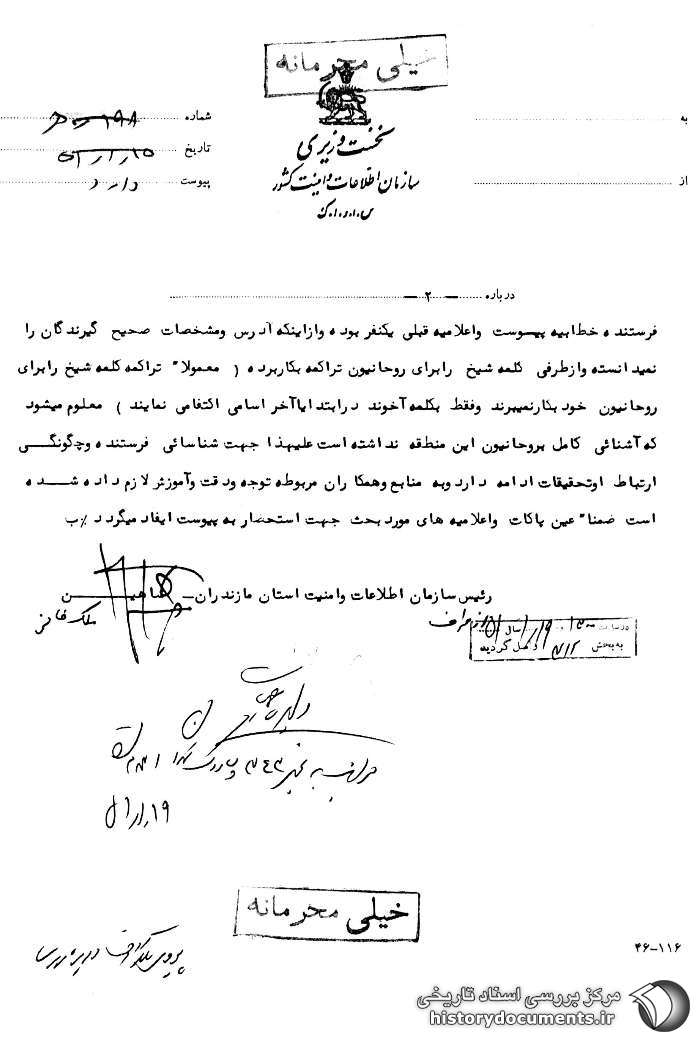 خیلی محرمانه
نخست وزیری
سازمان اطلاعات وامنیت کشور
س.ا.و.ا.ک
به
از
شماره
تاریخ ۱۵ر۱ر۵۱
پیوست دارد
درباره ــ ۲ ــ
فرستنده خطابیه پیوست واعلامیه قبلی یکنفر بوده وازاینکه آدرس ومشخصات صحیح گیرندگان را
نمیدانسته وازطرفی کلمه شیخ رابرای روحانیون تراکمه بکاربرده ( معمولا" تراکمه کلمه شیخ رابرای
روحانیون خود بکارنمیبرند وفقط بکلمه آخوند درابتدایاآخر اسامی اکتفامی نمایند ) معلوم میشود
که آشنائی کامل بروحانیون این منطقه نداشته است علیهذا جهت شناسائی فرستنده وچگونگی
ارتباط اوتحقیقات ادامه دارد وبه منابع وهمکاران مربوطه توجه ودقت وآموزش لازم داده شده
است ضمنا" عین پاکات واعلامیه های مورد بحث جهت استحضار به پیوست ایفاد میگردد %ب
رئیس سازمان اطلاعات وامنیت استان مازندران
در ساعت سال
به بخش ۳۱۲ واصل گردیده
۱۹ر۱ر۵۱
خیلی محرمانه
۴۶-۱۱۶
مرکز بررسی اسناد تاریخی
historydocuments.ir